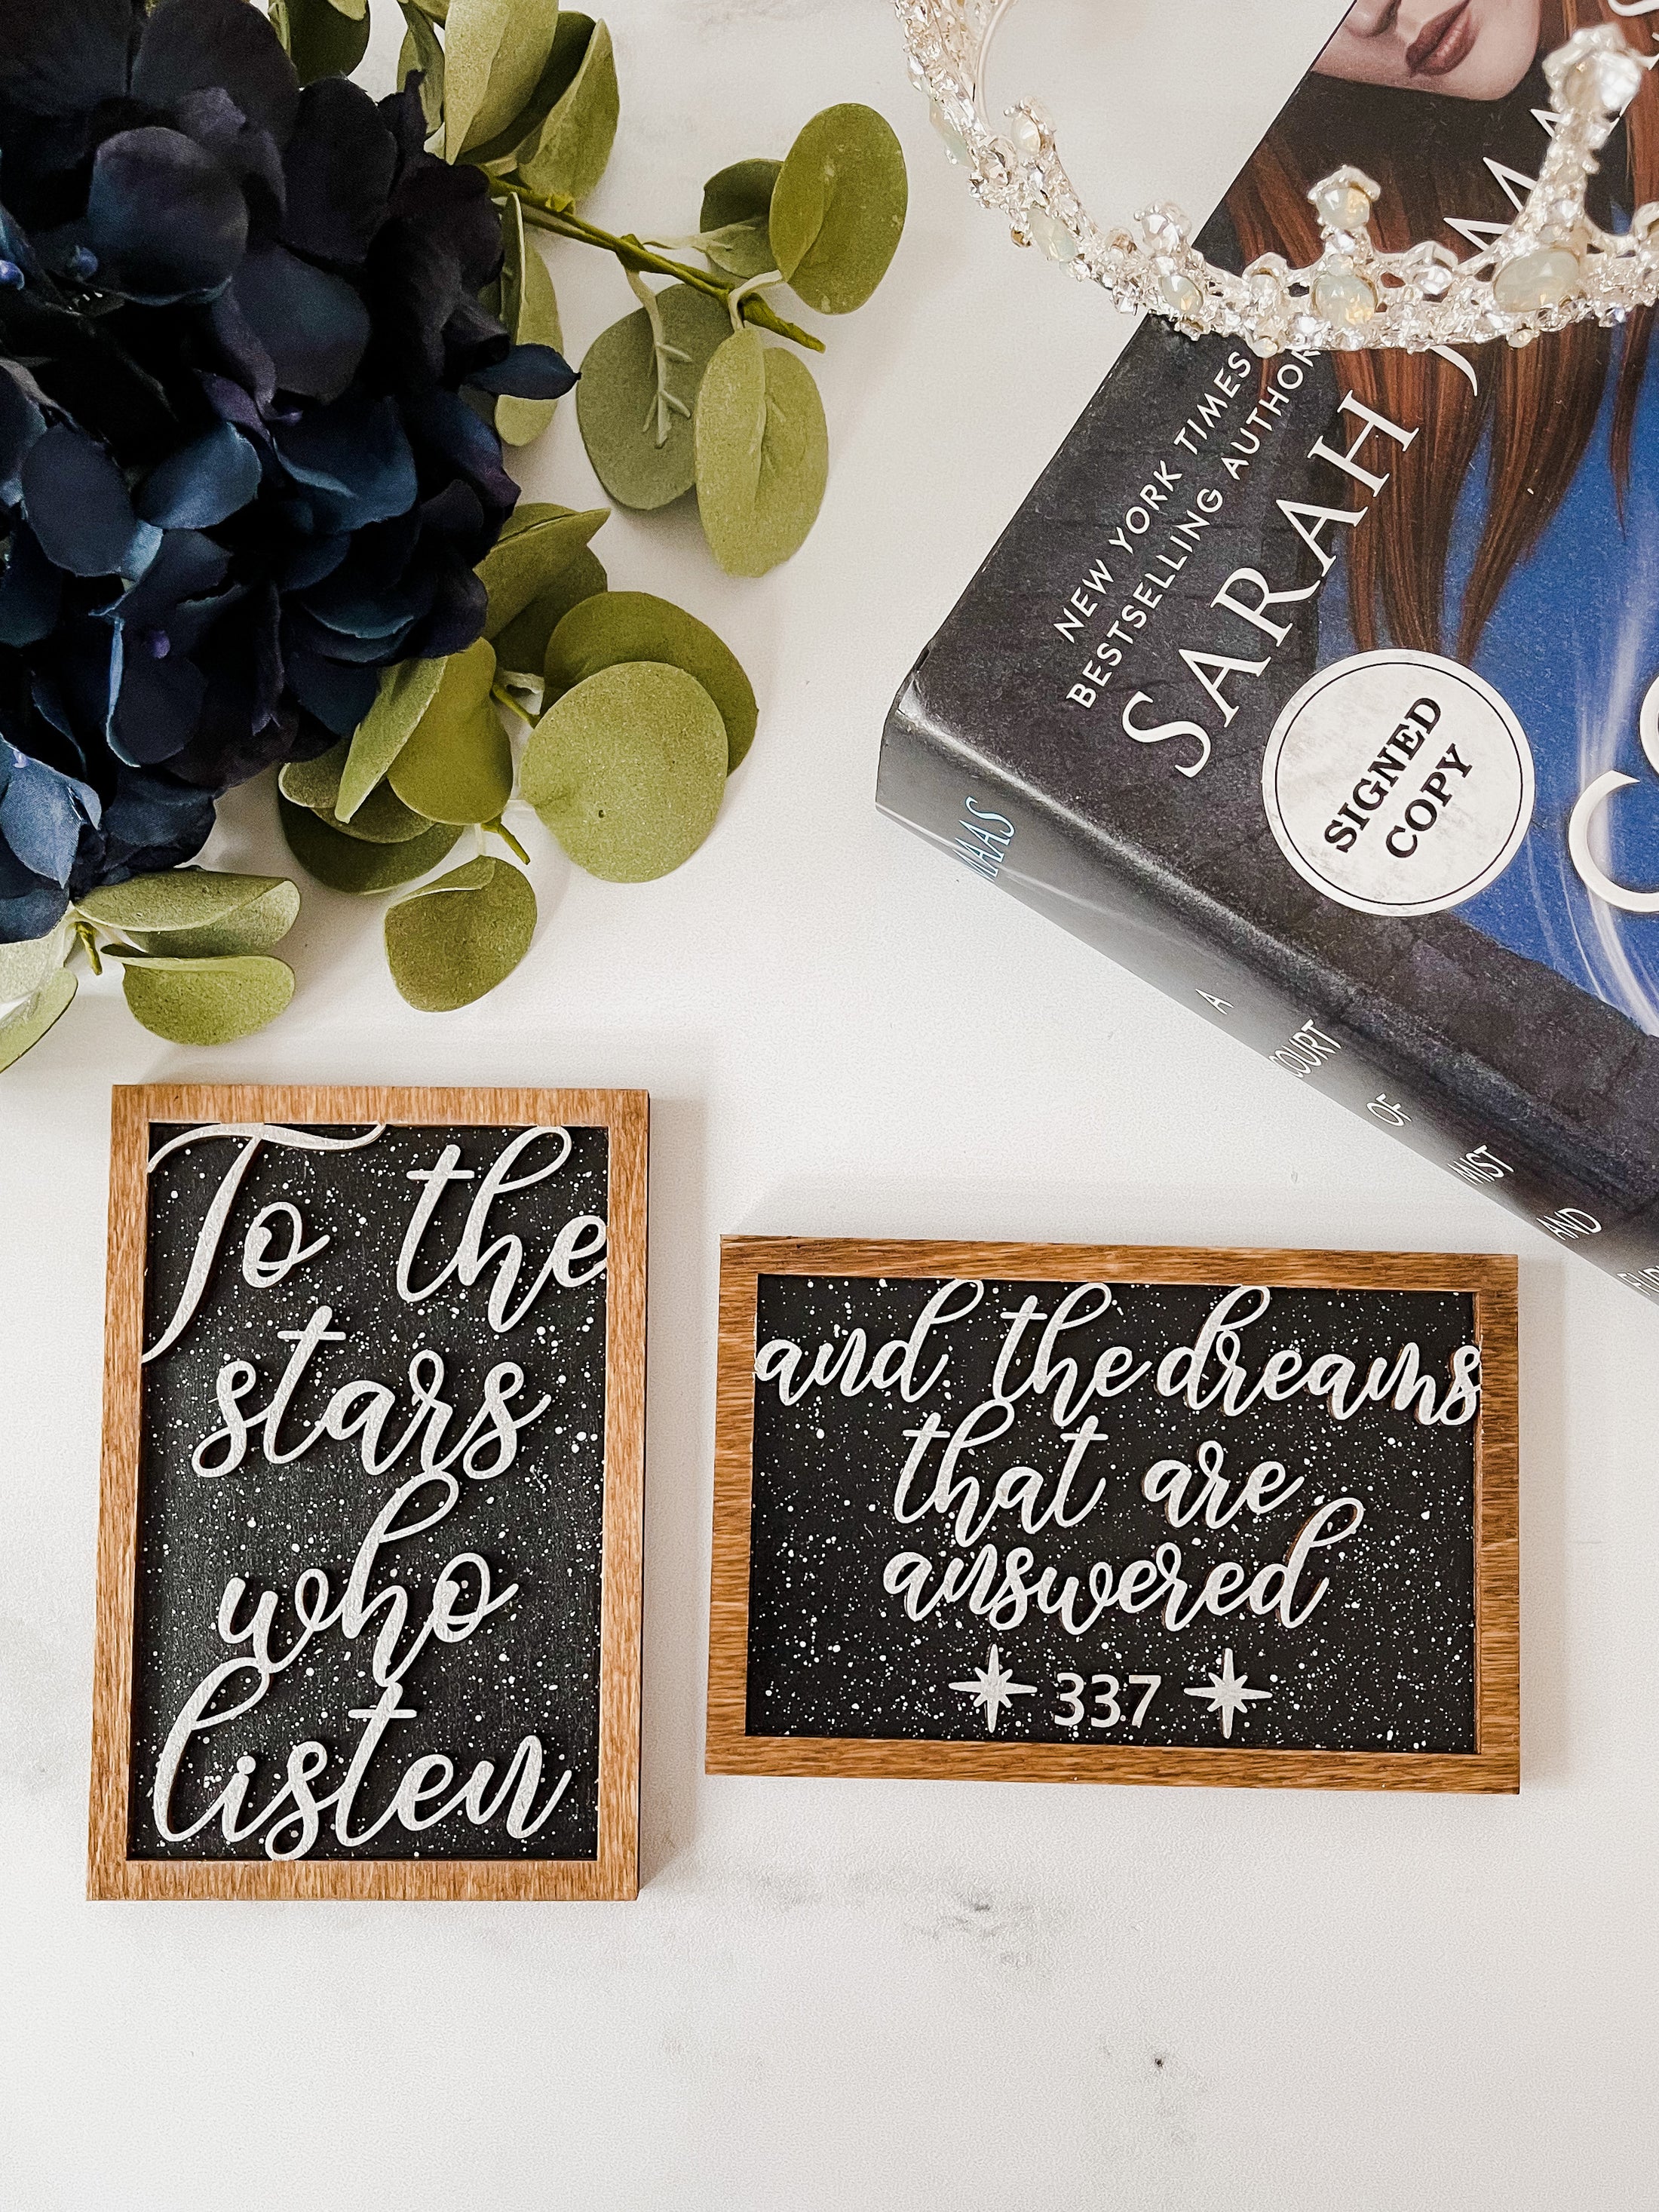 NEW YORK TIMES
BESTSELLING AUTHOR
SARAH J. M
SIGNED
COPY
MAAS
A COURT OF MIST AND
To the
stars
who
listen
and the dreams
that are
answered
337